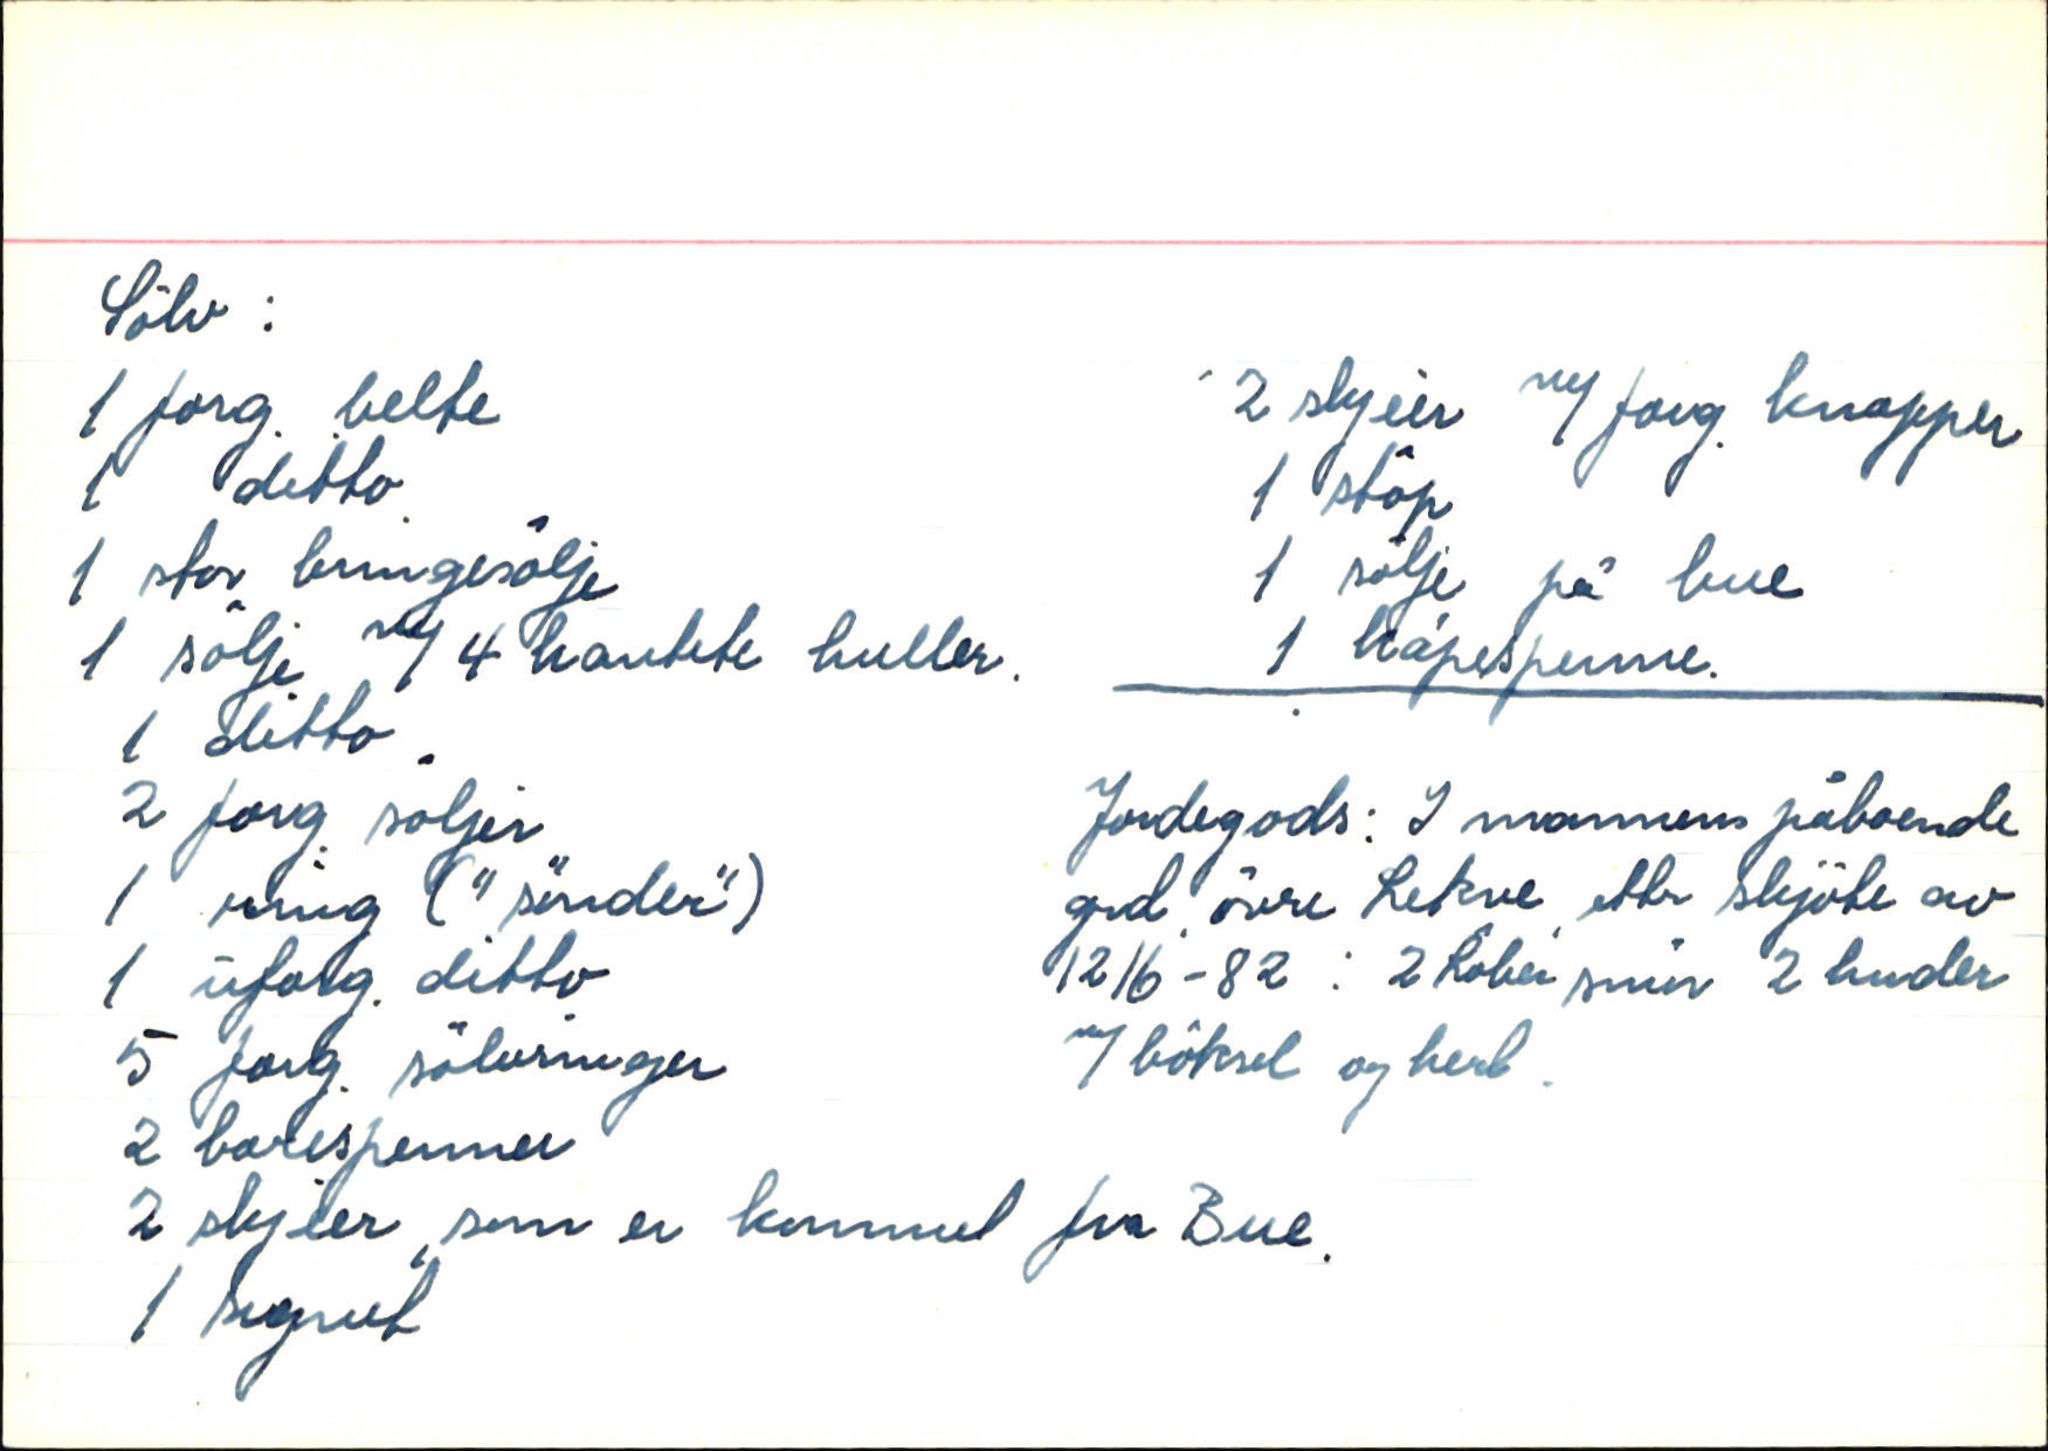 Sölv :
1 forg. belte
1 ditto
1 stor bringesölje
1 sölje m/ 4 kantete huller.
1 ditto
2 forg. söljer
1 ring ("sönder")
1 uforg. ditto
5 forg. sölvringer
2 bare spenner
2 skjeer, som er kommet fra Bue.
1 signet
2 skjeer m/ forg. knapper
1 stöp
1 sölje på bue
1 kåpespenne.
Jordegods: I mannens påboende
grd. övre Lekve, etter skjöte av
12/6-82 : 2 löber smör 2 huder
m/ böksel og herl.